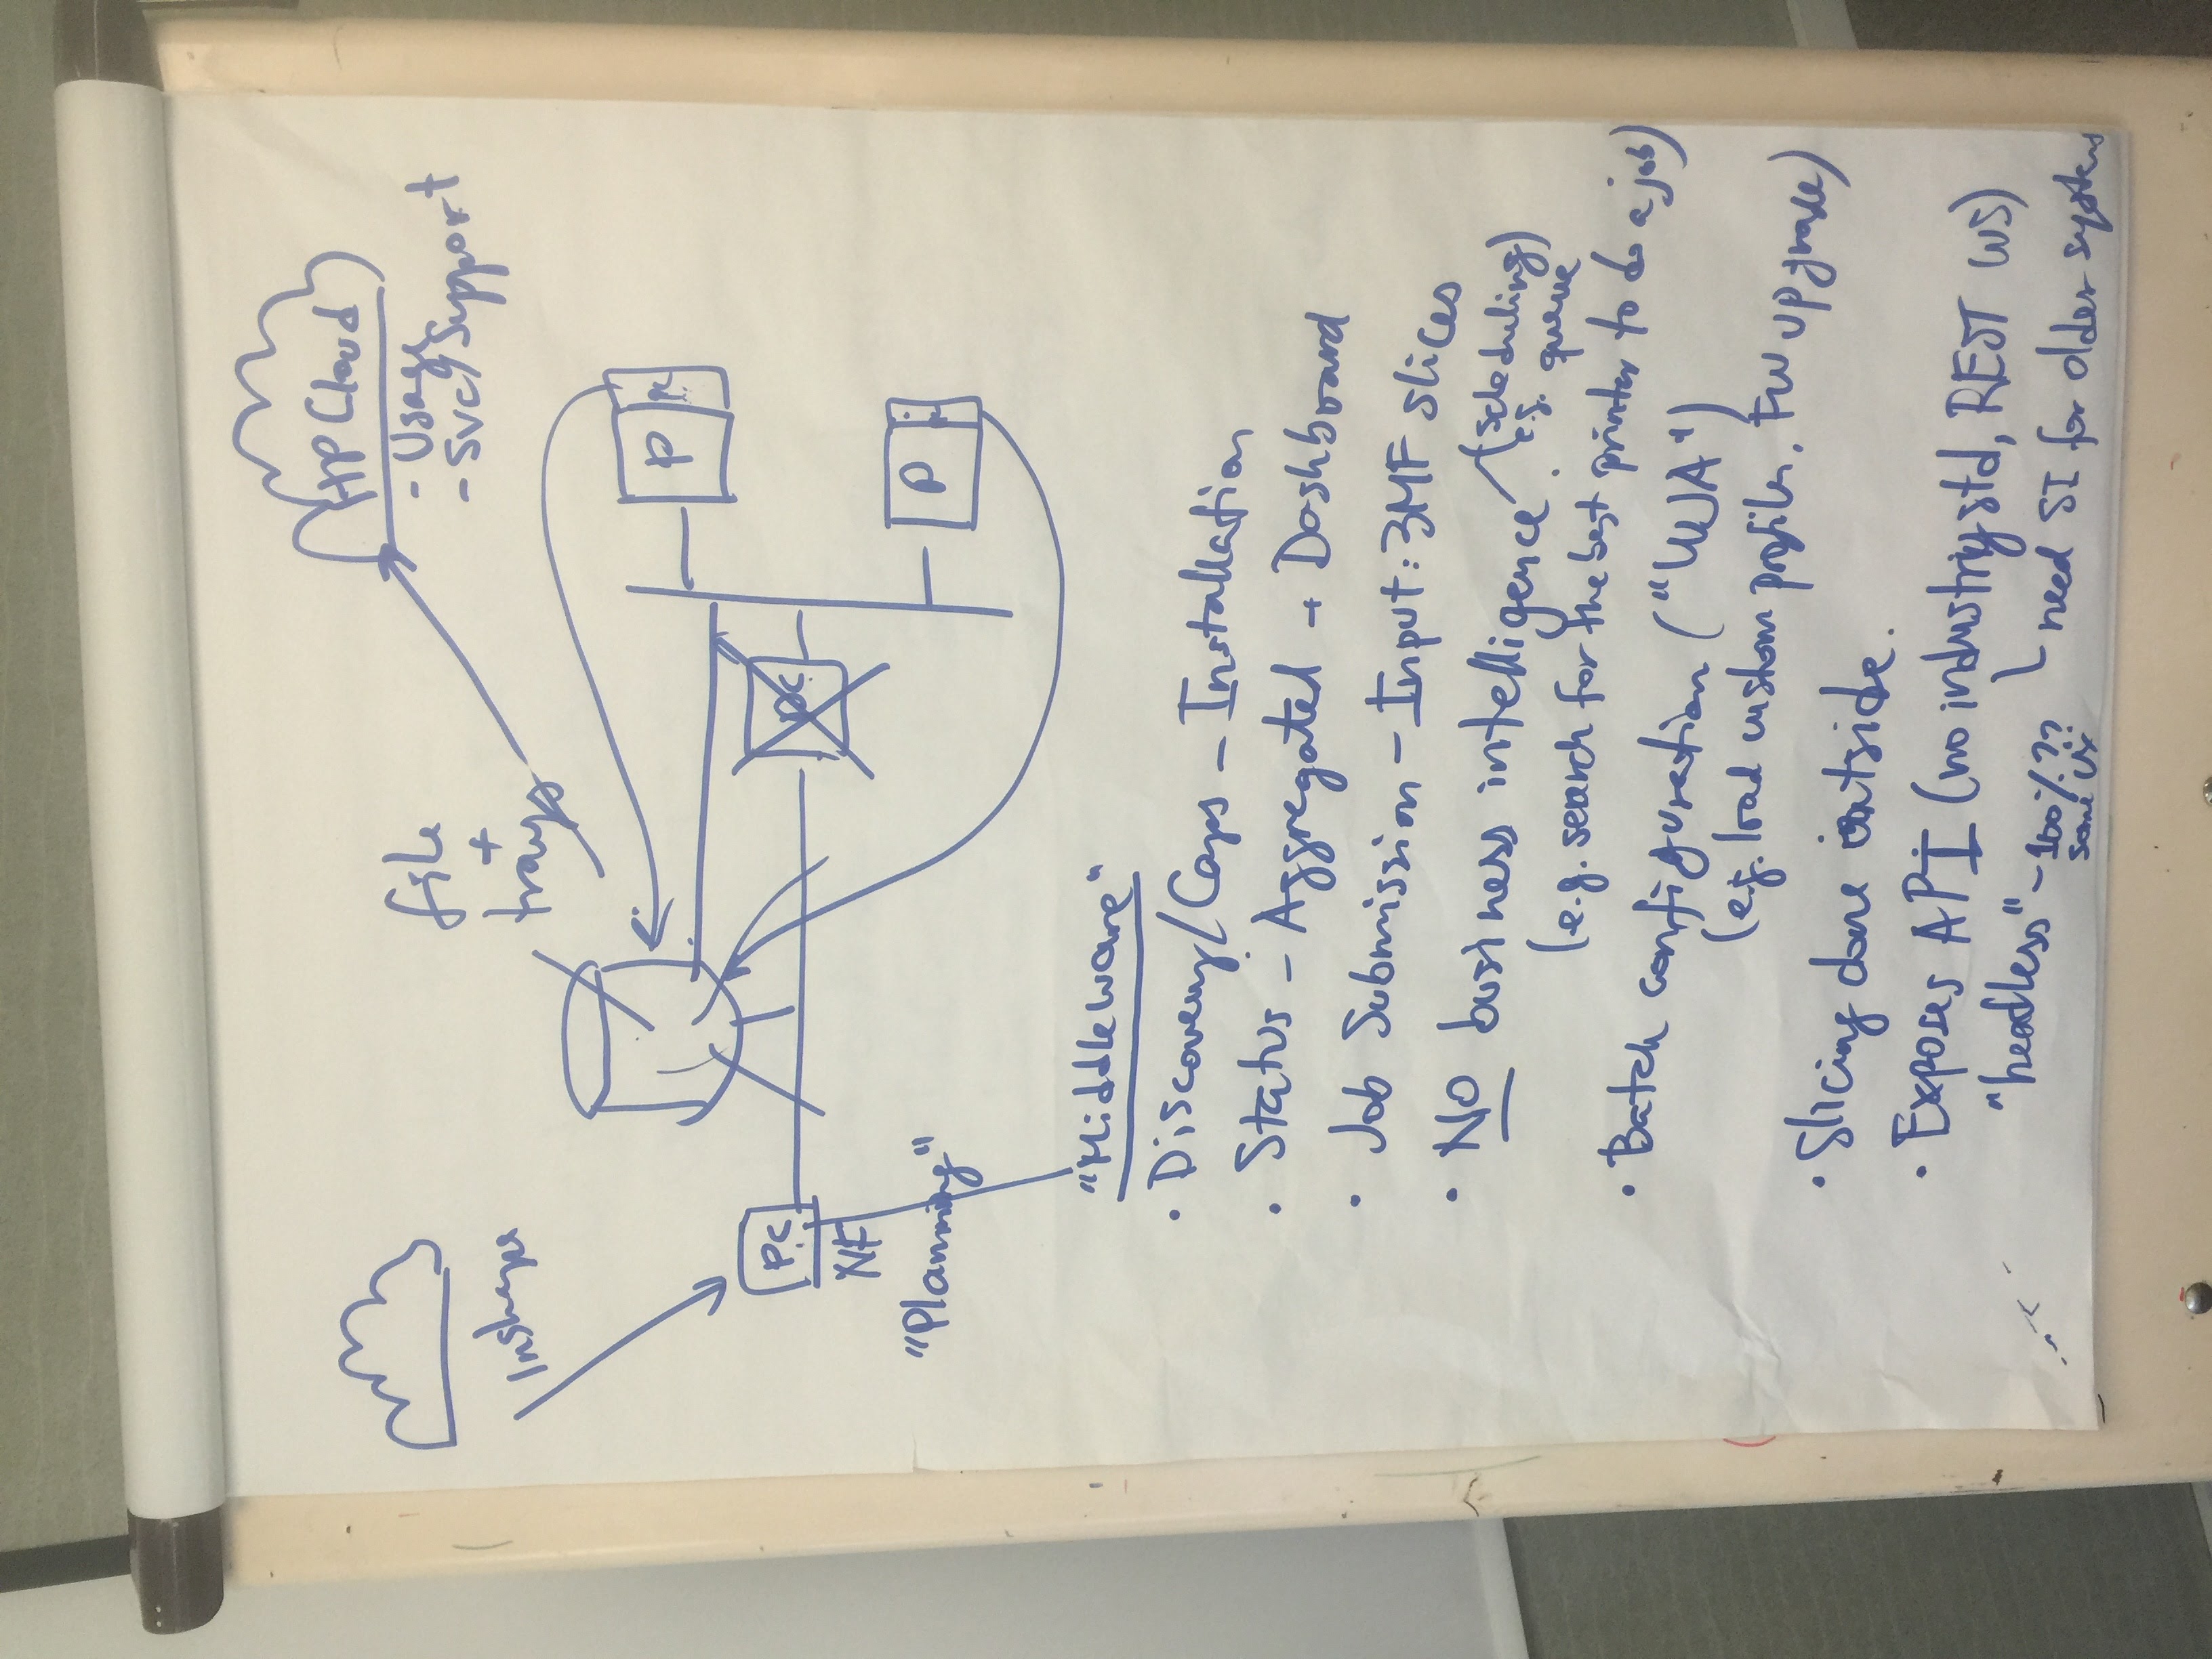 HP Cloud
- Usage
- Svc/Support
file
+
trays
Inshape
P PC
PC
PC
NF
P
"Planning"
"Middleware"
• Discovery/Caps - Installation
• Status - Aggregated → Dashboard
• Job Submission - Input: 3MF slices
• NO business intelligence (scheduling)
e.g. queue
(e.g. search for the best printer to do a job)
• Batch configuration ("WJA")
(e.g. load custom profiles, FW upgrade)
• Slicing done outside.
• Exposes API (no industry std, REST WS)
"headless" - 100%??
some UX
need SI for older systems